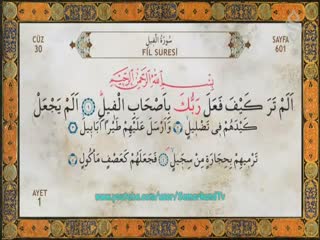 CÜZ
30
سُورَةُ الْفِيلِ
FİL SURESİ
SAYFA
601
بِسْمِ اللّٰهِ الرَّحْمٰنِ الرَّحِيمِ
اَلَمْ تَرَ كَيْفَ فَعَلَ رَبُّكَ بِاَصْحَابِ الْفِيلِ ﴿١﴾ اَلَمْ يَجْعَلْ
كَيْدَهُمْ فِي تَضْلِيلٍ ﴿٢﴾ وَاَرْسَلَ عَلَيْهِمْ طَيْرًا اَبَابِيلَ ﴿٣﴾
تَرْمِيهِمْ بِحِجَارَةٍ مِنْ سِجِّيلٍ ﴿٤﴾ فَجَعَلَهُمْ كَعَصْفٍ مَأْكُولٍ ﴿٥﴾
AYET
1